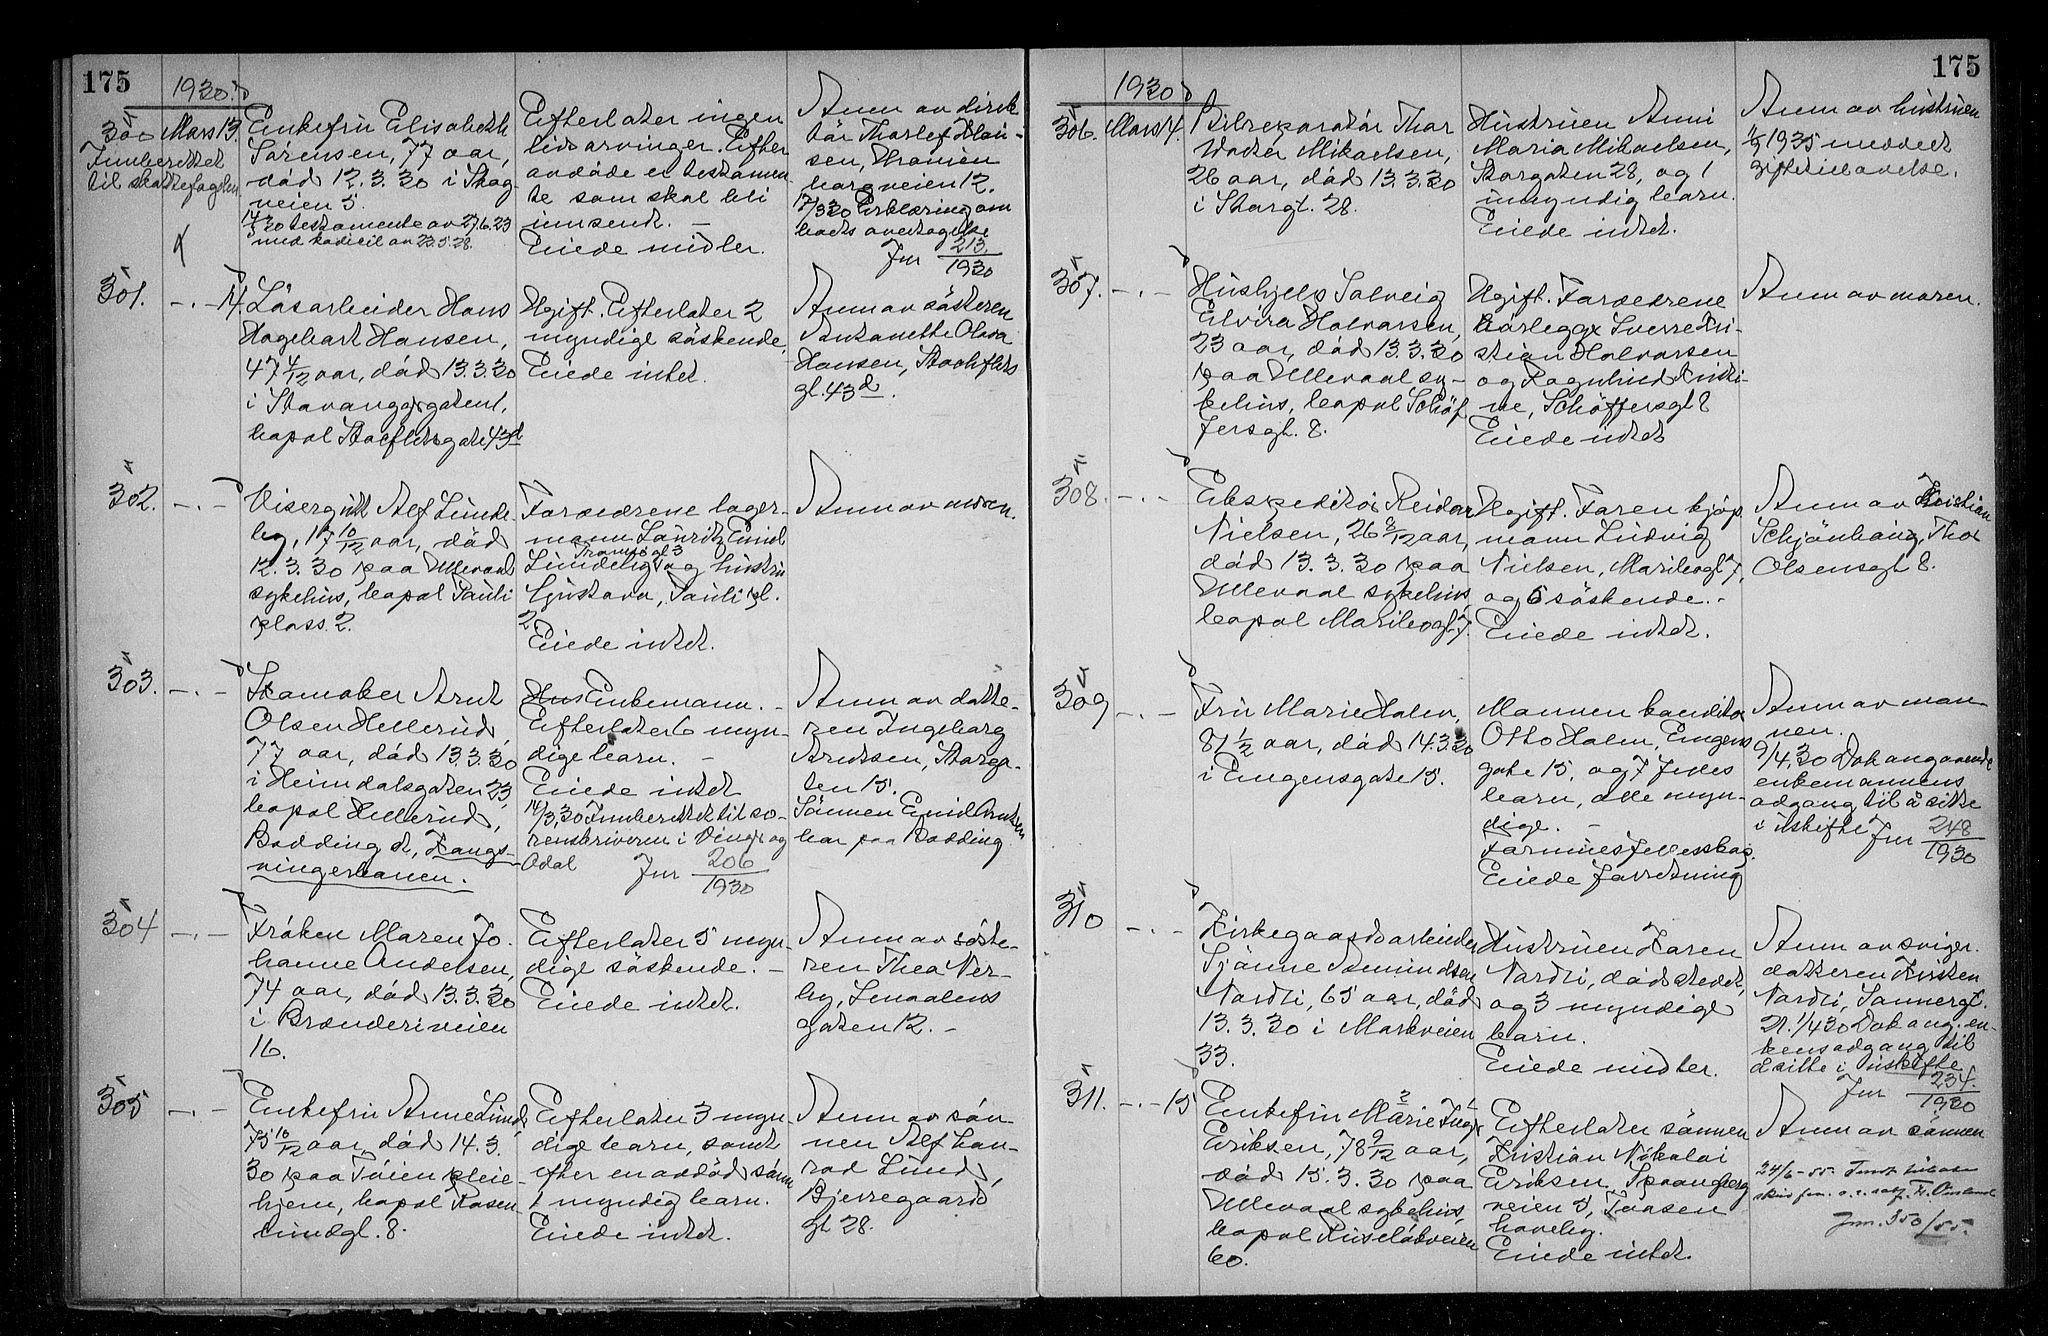 175
1930.
300 Mars 13.
Innberettet
til skattefogden
Enkefru Elisabeth
Sörensen, 77 aar,
död 12.3.30 i Skog-
veien 5.
14/3 30 testamente av 27.6.23
med kodicil av 23.5.28.
Efterlater ingen
livsarvinger. Efter
avdöde er testamen-
te som skal bli
innsendt. —
Eiede midler.
Anm av direk
tör Thorlef
sen,
borgveien 12.
17/3 30 Erklæring om
boets overtagelse
Jnr 213/1930
301. —.— 14.
Lösarbeider Hans
Hagebart Hansen,
47 4/12 aar, död 13.3.30
i Stavangergaten 1,
bopal Stockfletsgate 43d
Ugift. Efterlater 2
myndige söskende,
Eiede intet.
Anm av sösteren
Antonette Olava
Hansen, Stockflets
gt. 43d.
302. —.—
Visergutt Alf Lunde-
by, 17 10/12 aar, död
12.3.30 paa Ullevaal
sykehus, bopal Pauli
plass 2.
Forældrene lager-
mann Lauritz Emil
Lundeby, Tromsögt 3 og hustru
Gustava, Pauli pl.
2.
Eiede intet.
Anm av moren.
303. —.—
Skomaker Arnt
Olsen Hellerud,
77 aar, död 13.3.30
i Heimdalsgaten 23,
bopal Hellerud,
Bodding st, Kongs-
vingerbanen.
Hus Enkemann. -
Efterlater 6 myn-
dige barn. —
Eiede intet
14/3.30 Innberettet til so-
renskriveren i Vinger og
Odal Jnr 206/1930
Anm av datte-
ren Ingeborg
Arntsen, Storga-
ten 15.
Sönnen Emil Arntsen
bor paa Bodding
304 —.—
Fröken Maren Jo-
hanne Andersen,
74 aar, död 13.3.30
i Brænderiveien
16.
Efterlater 5 myn-
dige söskende. —
Eiede intet.
Anm av söste-
ren Thea Ner-
by,
gaten 12. —
305 —.—
Enkefru Anne Lund,
75 10/12 aar, död 14.3.
30 paa Töien pleie-
hjem, bopal Rosen
lundgt. 8.
Efterlater 3 myn-
dige barn, samt
efter en avdöd sönn
1 myndig barn.
Eiede intet.
Anm av sön-
nen Alf Kon-
rad Lund,
Bjerregaards
gt 28.
175
1930
306. Mars 14.
Bilreparatör Thor
Walter Mikaelsen,
26 aar, död 13.3.30
i Storgt. 28.
Hustruen Anni
Maria Mikaelsen,
Storgaten 28, og 1
umyndig barn.
Eiede intet.
Anm av hustruen
1935 meddelt
giftetillatelse.
307. —.—
Hushjelp Solveig
Elvira Halvorsen,
23 aar, död 13.3.30
paa Ullevaal sy-
kehus, bopal Schöf
fersgt. 8.
Ugift. Forældrene
Sverre Kri-
stian Halvorsen
og Ragnhild Kristi-
ne, Schöffersgt 8
Eiede intet
Anm av moren.
308. —.—
Ekspeditör Reidar
Nielsen, 26 8/12 aar,
död 13.3.30 paa
Ullevaal sykehus,
bopal Mariboegt. 7.
Ugift. Faren kjöp-
mann Ludvig
Nielsen, Mariboegt 7,
og 6 söskende. -
Eiede intet.
Anm av Kristian
Schjönhaug, Thor
Olsensgt 8.
309 —.—
Fru Marie Holm,
81 1/2 aar, död 14.3.30
i Eugensgate 15.
Mannen konditor
Otto Holm, Eugens
gate 15, og 7 felles
barn, alle myn-
dige. —
Formuesfellesskap.
Eiede forretning
Anm av man-
nen.
9/4.30 Dok angaaende
enkemannens
adgang til å sitte
i uskifte Jnr 248/1930
310 —.—
Kirkegaardsarbeider
Sjönne Aamundsen
Nordli, 65 aar, död
13.3.30 i Markveien
33.
Hustruen Karen
Nordli, dödsstedet,
og 3 myndige
barn.
Eiede midler.
Anm av sviger-
datteren Kristen
Nordli, Sannergt.
21. 1/4 30 Dok ang. en-
kens adgang til
å sitte i uskifte
Jnr 234/1930
311. —.— 15
Enkefru Marie Inge
Eriksen, 78 9/12 aar,
död 15.3.30 paa
Ullevaal sykehus,
bopal Huseløkveien
60.
Efterlater sönnen
Kristian Nikolai
Eriksen, Spaangberg
veien 5, Taasen
haveby.
Eiede intet.
Anm av sönnen
24/6-55.
Jnr. 350/55.